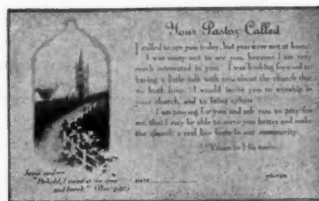 Your Pastor Called
I called to see you today, but you were not at home.
I was sorry not to see you, because I am very
much interested in you. I was looking forward to
having a little talk with you about the church that
we both love. I would invite you to worship in
your church, and to bring others.
I am praying for you and ask you to pray for
me, that I may be able to serve you better and make
the church a real live force in our community.
Yours in His name,
Jesus said—
"Behold, I stand at the door
and knock" (Rev. 3:20)
DATE